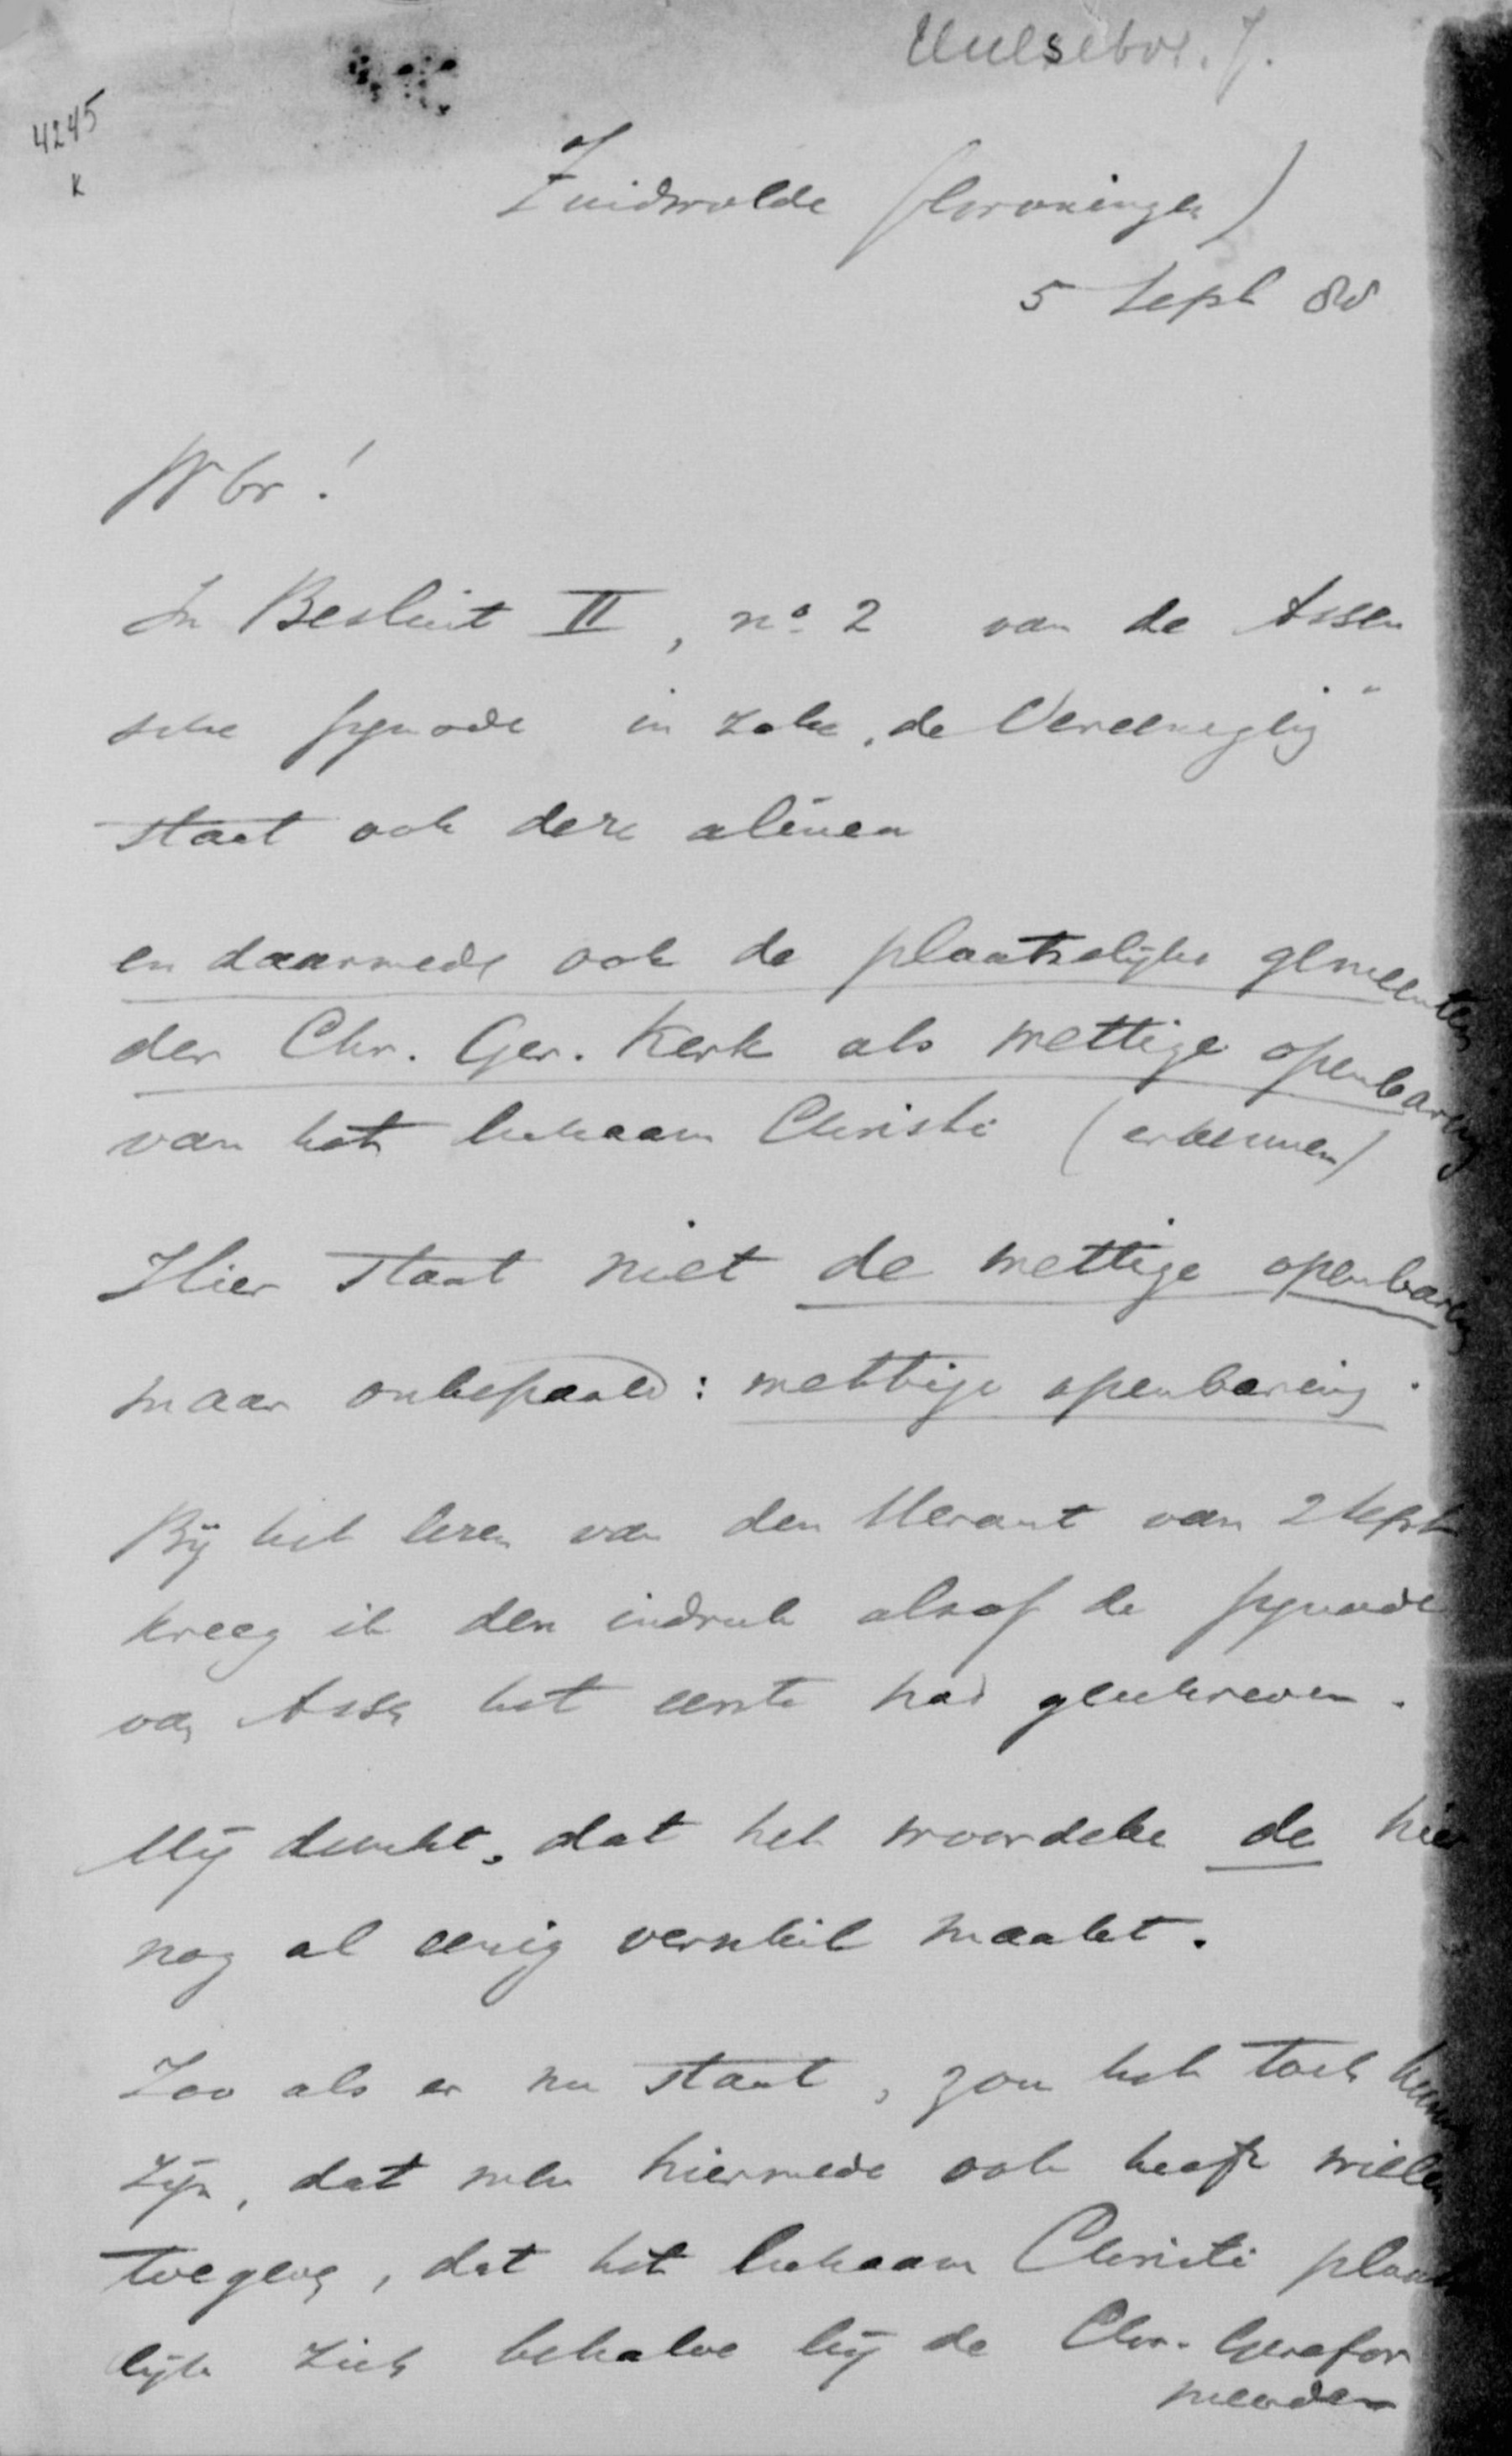 Hulsebos. J.
4245
K
Zuidwolde (Groningen)
5 Sept 88
WBr!
In Besluit II, nº 2 van de Assen
sche synode in zake „de Vereeniging"
staat ook deze alinea
en daarmede ook de plaatselijke gemeenten
der Chr. Ger. Kerk als wettige openbaring
van het lichaam Christi (erkennen)
Hier staat niet de wettige openbaring
maar onbepaald: wettige openbaring.
Bij het lezen van den Heraut van 2 Sept
kreeg ik den indruk alsof de synode
van Assen het eerste had geschreven.
Mij dunkt, dat het woordeke de hier
nog al eenig verschil maakt.
Zoo als er nu staat, zou het toch kunnen
zijn, dat men hiermede ook heeft willen
toegeven, dat het lichaam Christi plaatse
lijk zich behalve bij de Chr. Gerefor
meerden